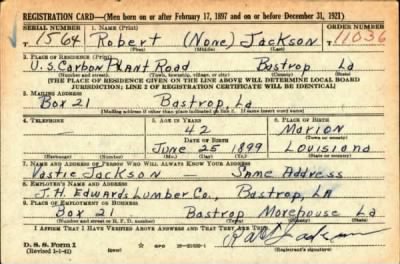 REGISTRATION CARD—(Men born on or after February 17, 1897 and on or before December 31, 1921)
SERIAL NUMBER 1. NAME (Print) ORDER NUMBER
T 1564 Robert (None) Jackson 11036
(First) (Middle) (Last)
2. PLACE OF RESIDENCE (Print)
U.S. Carbon Plant Road Bastrop La
(Number and street) (Town, township, village, or city) (County) (State)
[THE PLACE OF RESIDENCE GIVEN ON THE LINE ABOVE WILL DETERMINE LOCAL BOARD
JURISDICTION; LINE 2 OF REGISTRATION CERTIFICATE WILL BE IDENTICAL]
3. MAILING ADDRESS
Box 21 Bastrop, La
[Mailing address if other than place indicated on line 2. If same insert word same]
4. TELEPHONE 5. AGE IN YEARS 6. PLACE OF BIRTH
— 42 Marion
DATE OF BIRTH (Town or county)
June 25 1899 Louisiana
(Exchange) (Number) (Mo.) (Day) (Yr.) (State or country)
7. NAME AND ADDRESS OF PERSON WHO WILL ALWAYS KNOW YOUR ADDRESS
Vastie Jackson — Same Address
8. EMPLOYER'S NAME AND ADDRESS
J.H. Edwards Lumber Co., Bastrop, LA
9. PLACE OF EMPLOYMENT OR BUSINESS
Box 21 Bastrop Morehouse La
(Number and street or R. F. D. number) (Town) (County) (State)
I AFFIRM THAT I HAVE VERIFIED ABOVE ANSWERS AND THAT THEY ARE TRUE.
D. S. S. Form 1
(Revised 1-1-42) GPO (over) Jackson
(Registrant's signature)